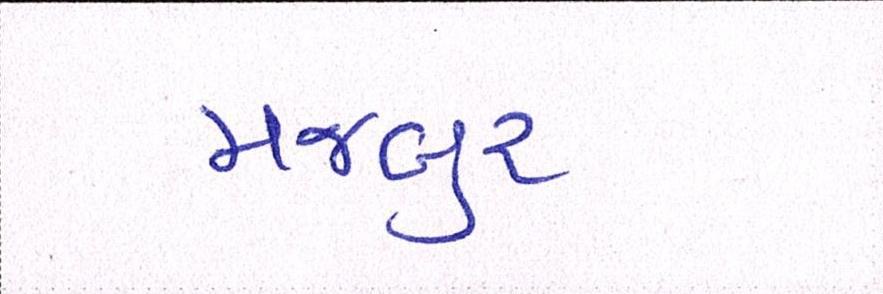 મજબુર